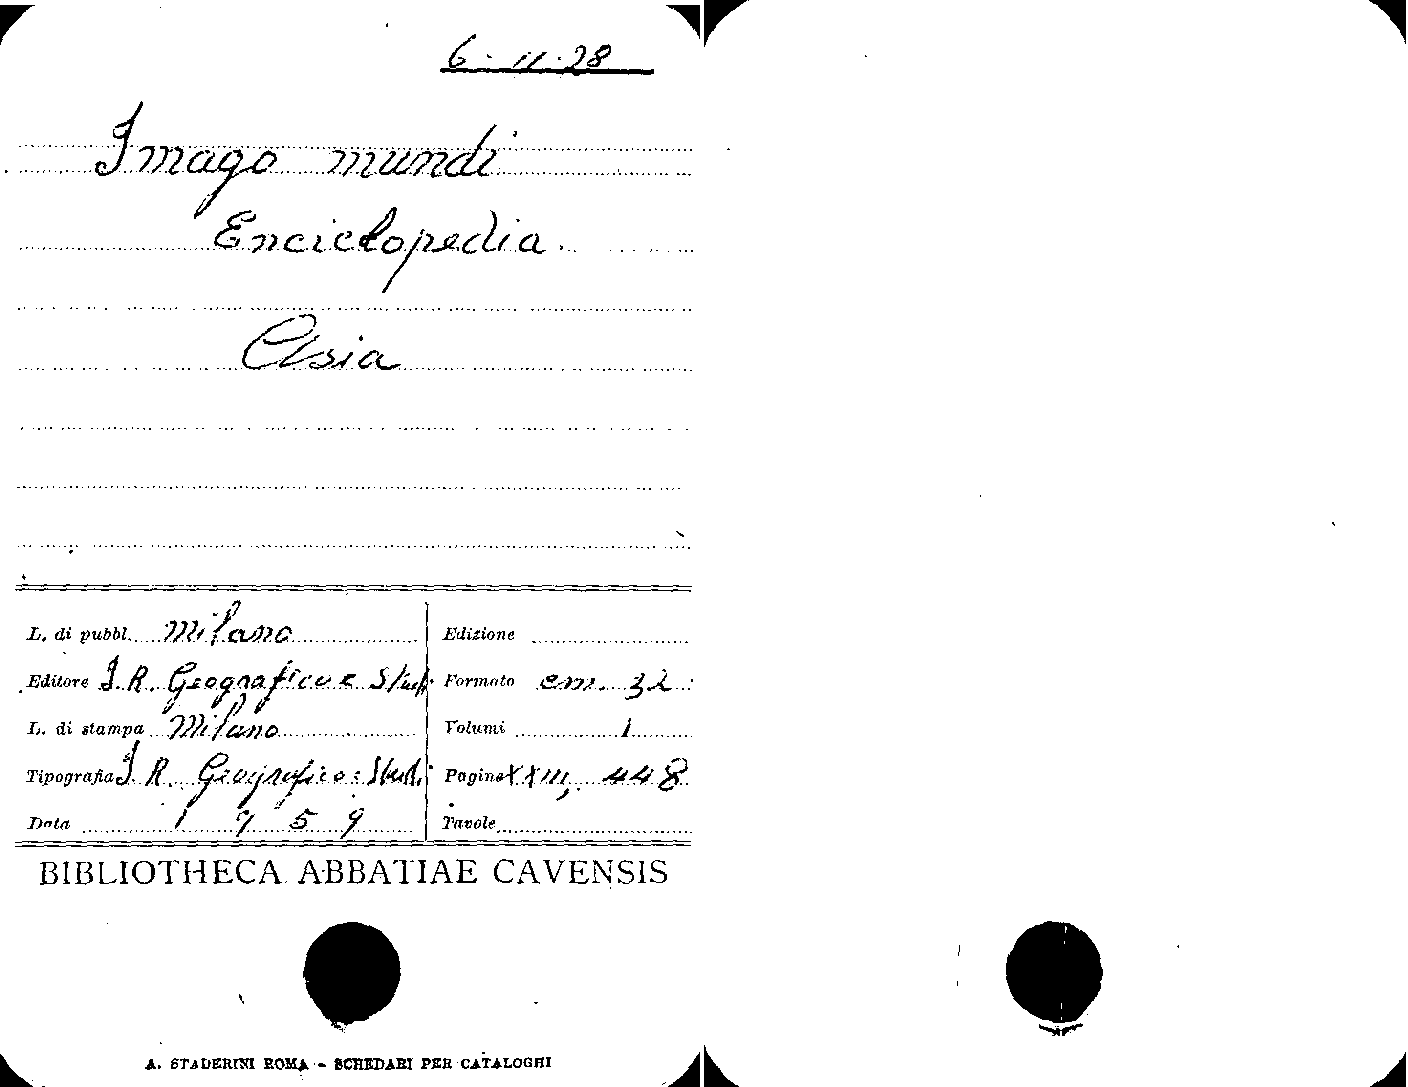 6-11-28
Imago mundi
Enciclopedia
Asia
L. di pubbl. Milano
Edizione
Editore I. R. Geografico e Stud.
Formato cm. 32
L. di stampa Milano
Volumi 1
Tipografia I. R. Geografico e Stud.
Pagine XXIII, 448
Data 1959
Tavole
BIBLIOTHECA ABBATIAE CAVENSIS
A. STADERINI ROMA - SCHEDARI PER CATALOGHI